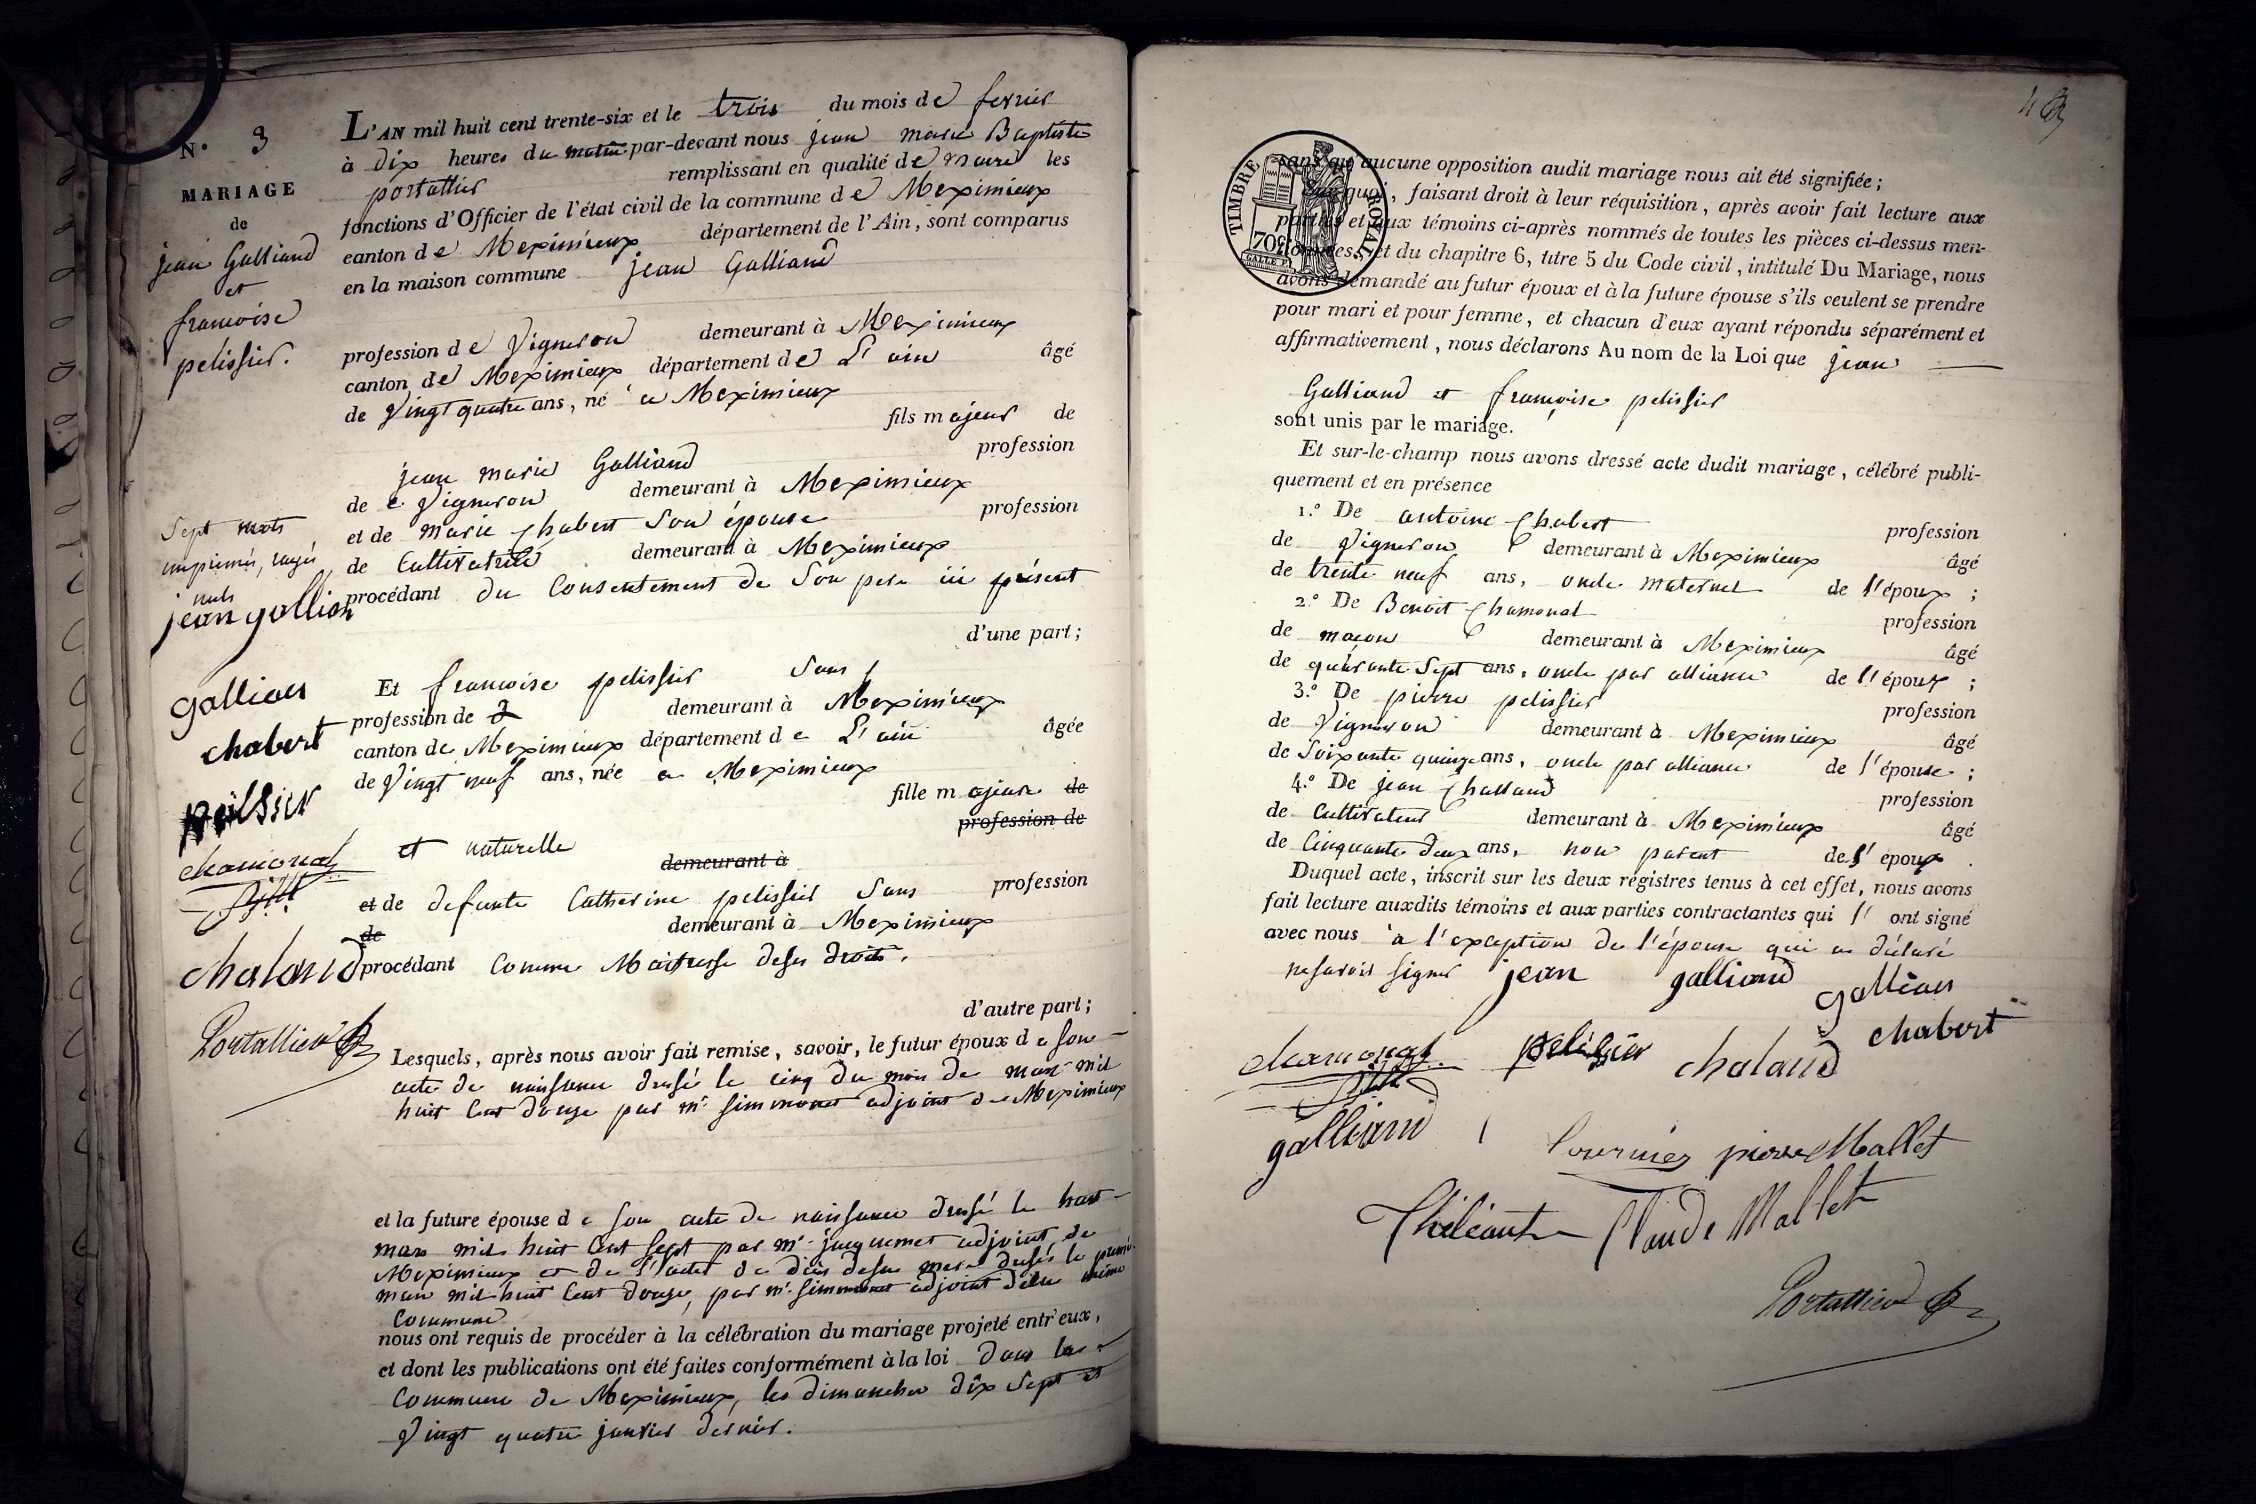 N.° 3
MARIAGE
de
jean Galliand
et
francoise
pelissier.
Sept mots
imprimés, rayés
nuls
jean gallian
Gallian
chabert
pelissier
chamonal
chaland
Portallier
L'AN mil huit cent trente-six et le trois du mois de fevrier
à dix heures du matin par-devant nous jean marie Baptiste
portallier remplissant en qualité de maire les
fonctions d'Officier de l'état civil de la commune de Meximieux
canton de Meximieux département de l'Ain, sont comparus
en la maison commune jean Galliand
profession de Vigneron demeurant à Meximieux
canton de Meximieux département de L'ain âgé
de Vingt quatre ans, né à Meximieux
fils majeur de
jean marie Galliand profession
de Vigneron demeurant à Meximieux
et de marie chabert son épouse profession
de Cultivatrice demeurant à Meximieux
procédant du Consentement de son pere ici présent
d'une part;
Et francoise pelissier Sans
profession de demeurant à Meximieux
canton de Meximieux département de L'ain âgée
de Vingt neuf ans, née a Meximieux
fille majeure de
profession de
et naturelle
demeurant à
et de defunte Catherine pelissier Sans profession
de demeurant à Meximieux
procédant Comme Maitresse de ses droits.
d'autre part;
Lesquels, après nous avoir fait remise, savoir, le futur époux de son
acte de naissance dressé le cinq du mois de mars mil
huit Cent douze par mr. simmonet adjoint de Meximieux
et la future épouse de son acte de naissance dressé le huit
mars mil huit Cent sept par mr. jacquemet adjoint de
Meximieux et de l'acte de décès de sa mere dressé le premier
mars mil huit Cent douze, par mr. simmonet adjoint même
Commune
nous ont requis de procéder à la célébration du mariage projeté entr'eux,
et dont les publications ont été faites conformément à la loi dans la
Commune de Meximieux, les dimanches dix sept et
Vingt quatre janvier dernier.
TIMBRE ROYAL
70c
sans qu'aucune opposition audit mariage nous ait été signifiée;
Sur quoi, faisant droit à leur réquisition, après avoir fait lecture aux
parties et aux témoins ci-après nommés de toutes les pièces ci-dessus men-
tionnées, et du chapitre 6, titre 5 du Code civil, intitulé Du Mariage, nous
avons demandé au futur époux et à la future épouse s'ils veulent se prendre
pour mari et pour femme, et chacun d'eux ayant répondu séparément et
affirmativement, nous déclarons Au nom de la Loi que jean
Galliand et françoise pelissier
sont unis par le mariage.
Et sur-le-champ nous avons dressé acte dudit mariage, célébré publi-
quement et en présence
1.° De antoine chabert profession
de Vigneron demeurant à Meximieux âgé
de trente neuf ans, oncle maternel de l'époux;
2.° De Benoit chamonal profession
de maçon demeurant à Meximieux âgé
de quarante Sept ans, oncle par alliance de l'époux;
3.° De pierre pelissier profession
de Vigneron demeurant à Meximieux âgé
de Soixante quinze ans, oncle par alliance de l'épouse;
4.° De jean challand profession
de Cultivateur demeurant à Meximieux âgé
de Cinquante deux ans, non parent des époux.
Duquel acte, inscrit sur les deux régistres tenus à cet effet, nous avons
fait lecture auxdits témoins et aux parties contractantes qui l'ont signé
avec nous à l'exception de l'épouse qui a déclaré
ne savoir signer jean galliand Gallian
chamonal pelissier chaland chabert
galliand pierre Mallet
Claude Mallet
Portallier